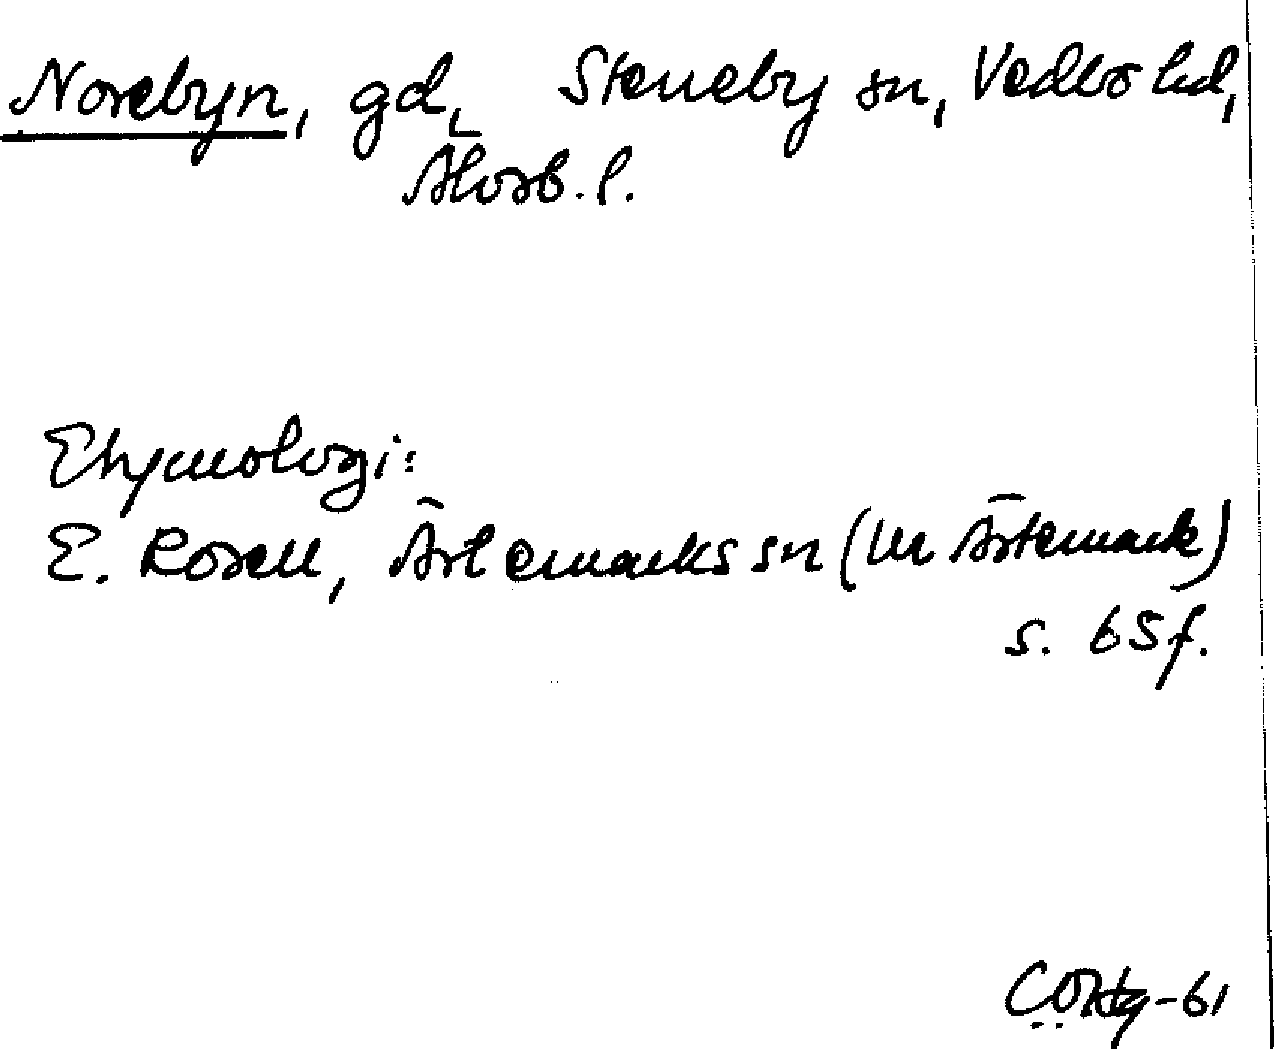 Norebyn, gd, Steneby sn, Vedbo hd,
Älvsb. l.
Etymologi:
E. Rosell, Ärtemarks sn (ur Ärtemark)
s. 65 f.
-61